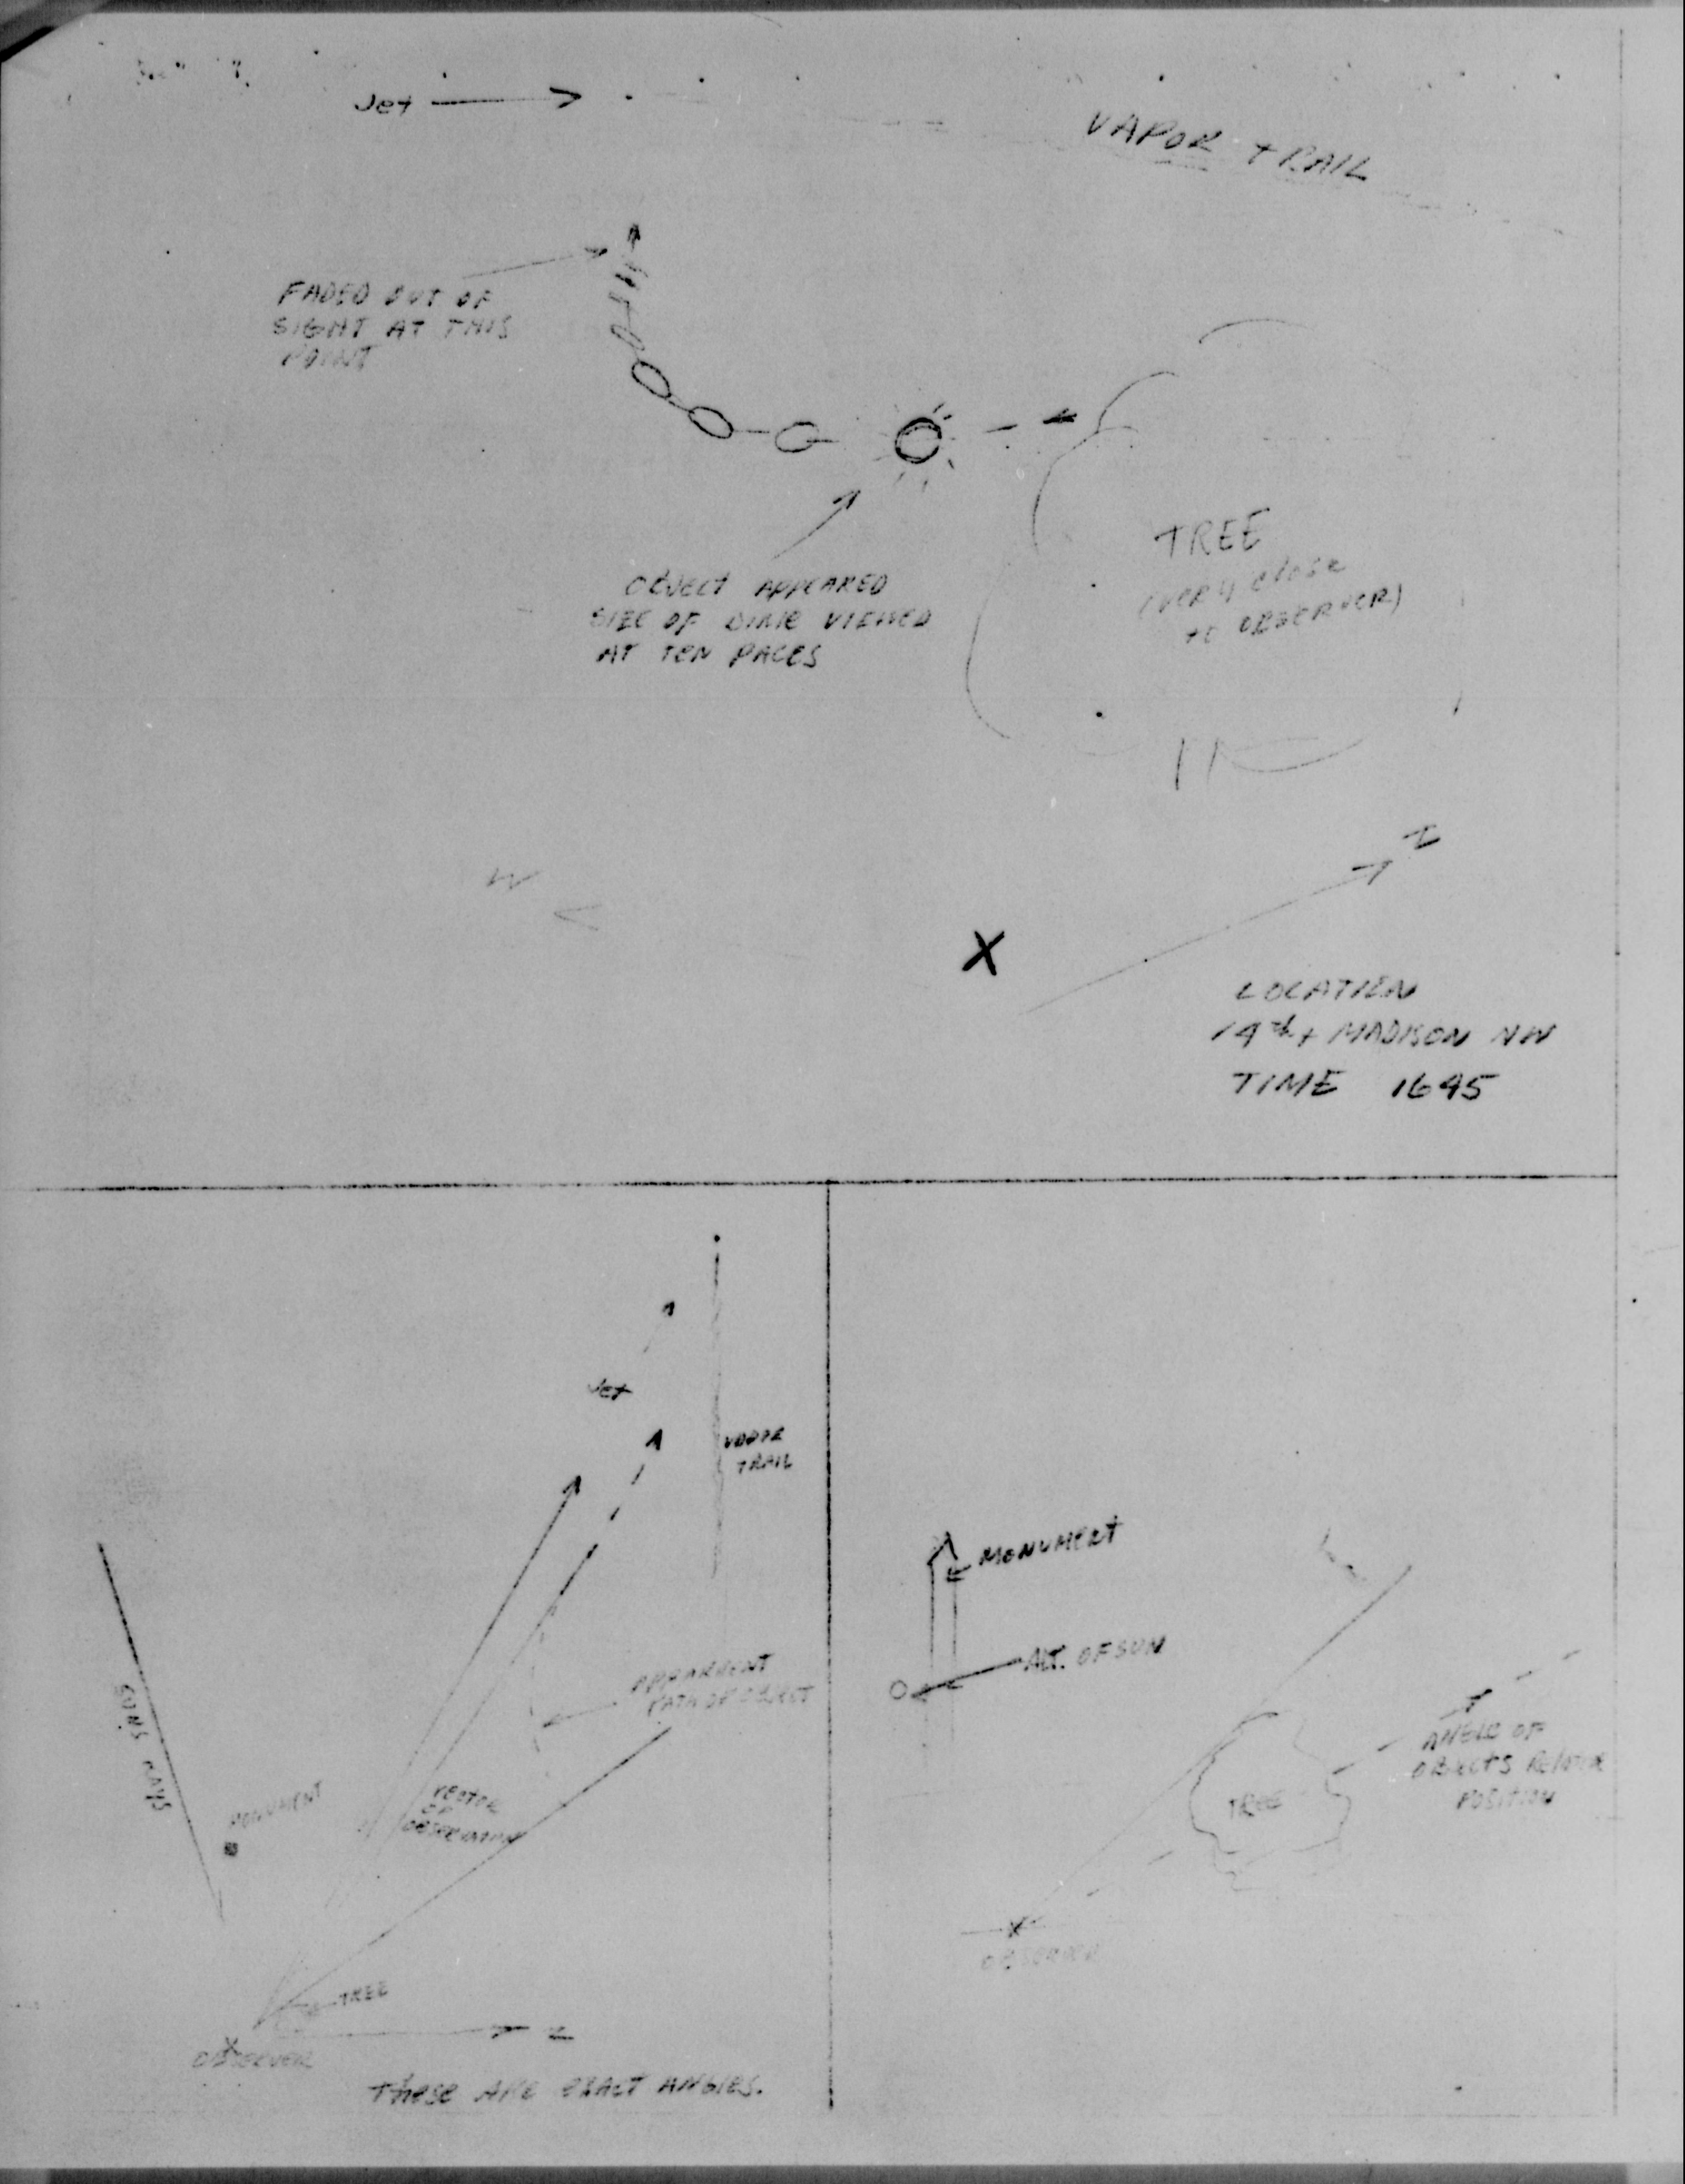 Jet
VAPOR TRAIL
FADED OUT OF
SIGHT AT THIS
POINT
OBJECT APPEARED
SIZE OF DIME VIEWED
AT TEN PACES
TREE
(VERY CLOSE
TO OBSERVER)
N
W
X
LOCATION
14th + MADISON NW
TIME 1645
Jet
VAPOR
TRAIL
APPARRENT
PATH OF OBJECT
SUNS RAYS
MONUMENT
VECTOR
OF
OBSERVATION
TREE
N
OBSERVER
These ARE EXACT ANGLES.
MONUMENT
ALT. OF SUN
ANGLE OF
OBJECTS RELATIVE
POSITION
TREE
OBSERVER